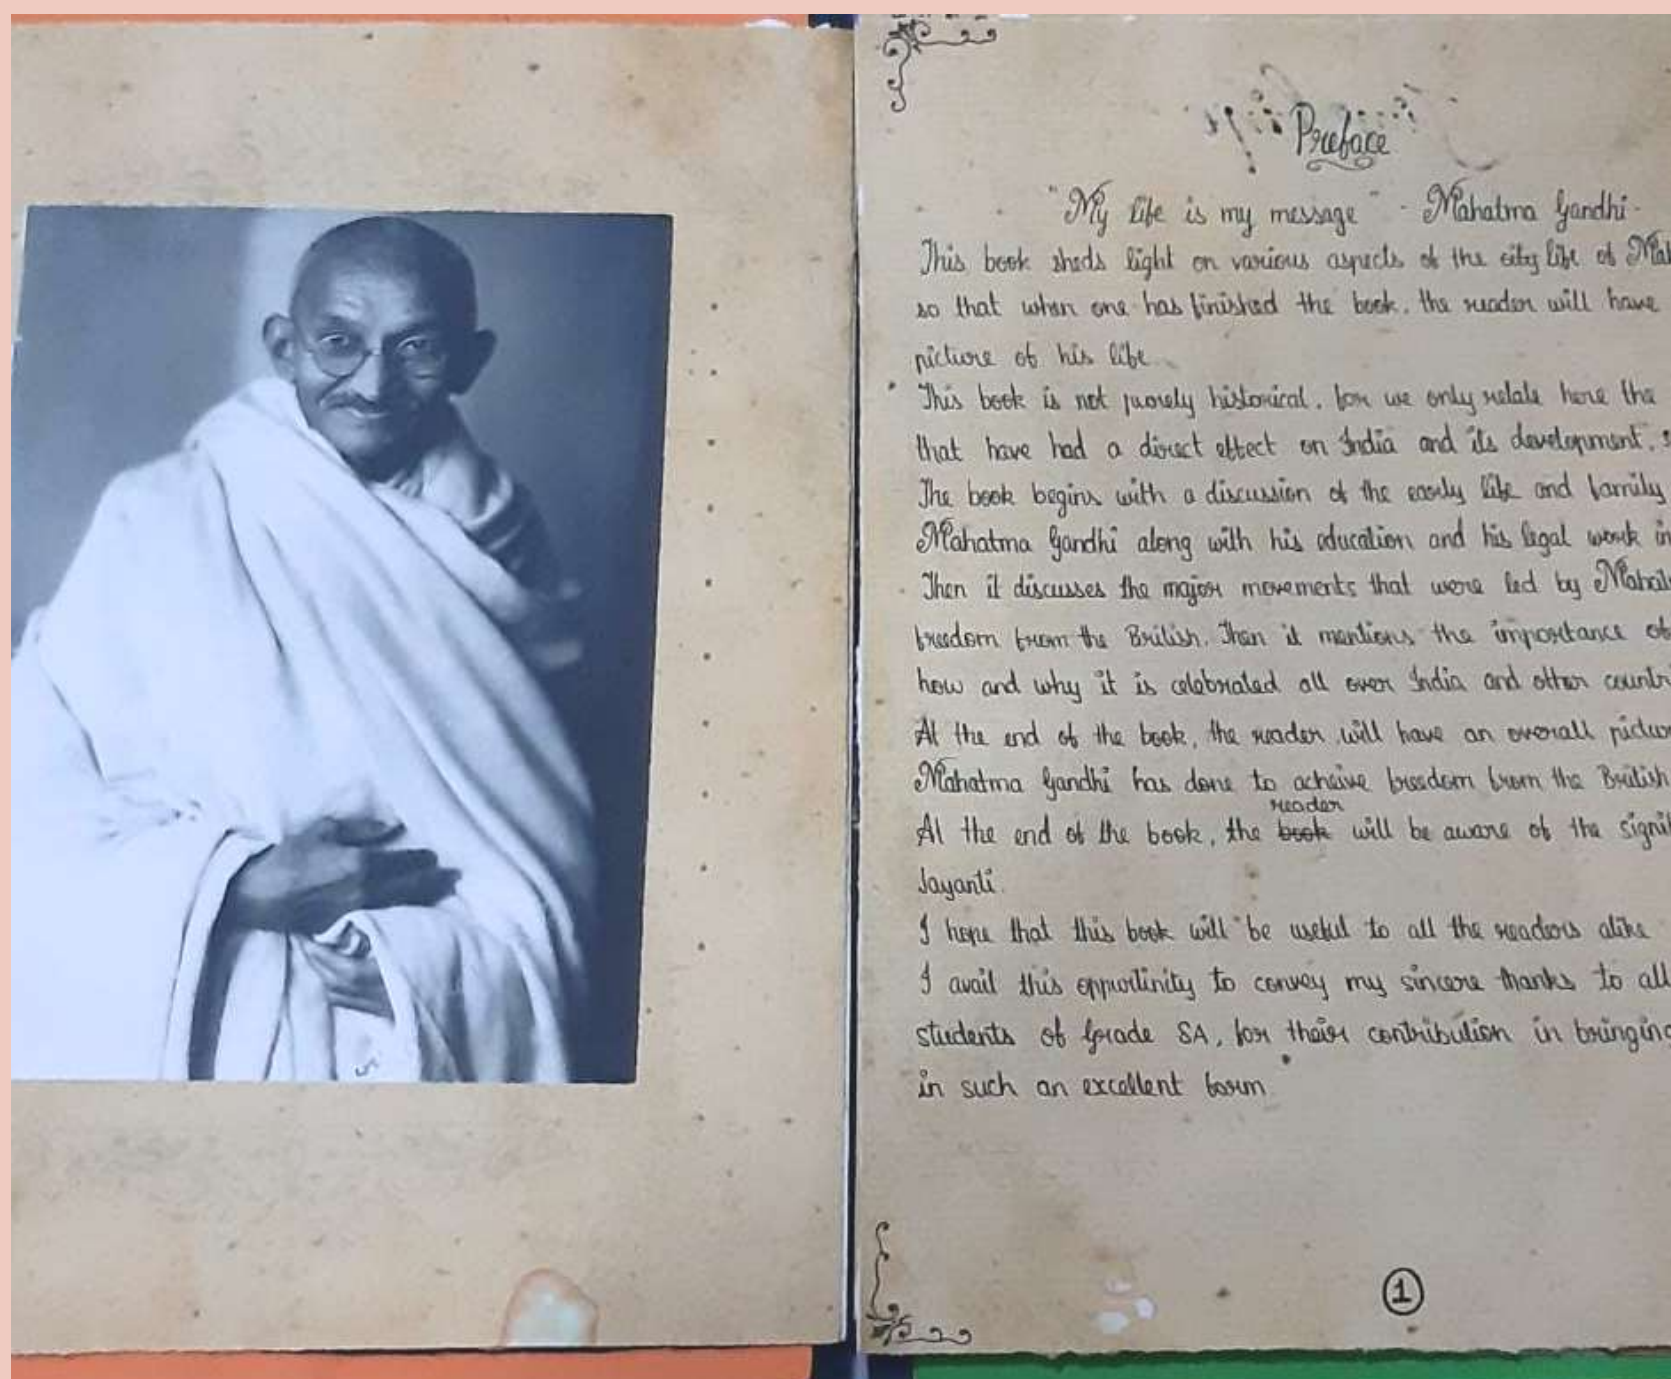 Preface
"My life is my message" - Mahatma Gandhi -
This book sheds light on various aspects of the city life of Mah
so that when one has finished the book, the reader will have
picture of his life.
This book is not purely historical, for we only relate here the
that have had a direct effect on India and its development.
The book begins with a discussion of the early life and family
Mahatma Gandhi along with his education and his legal work in
Then it discusses the major movements that were led by Mahat
freedom from the British. Then it mentions the importance of
how and why it is celebrated all over India and other countri
At the end of the book, the reader will have an overall pictur
Mahatma Gandhi has done to acheive freedom from the British
reader
At the end of the book, the book will be aware of the signif
Jayanti.
I hope that this book will be useful to all the readers alike
I avail this opportinity to convey my sincere thanks to all
students of Grade 5A, for their contribution in bringing
in such an excellent form
1